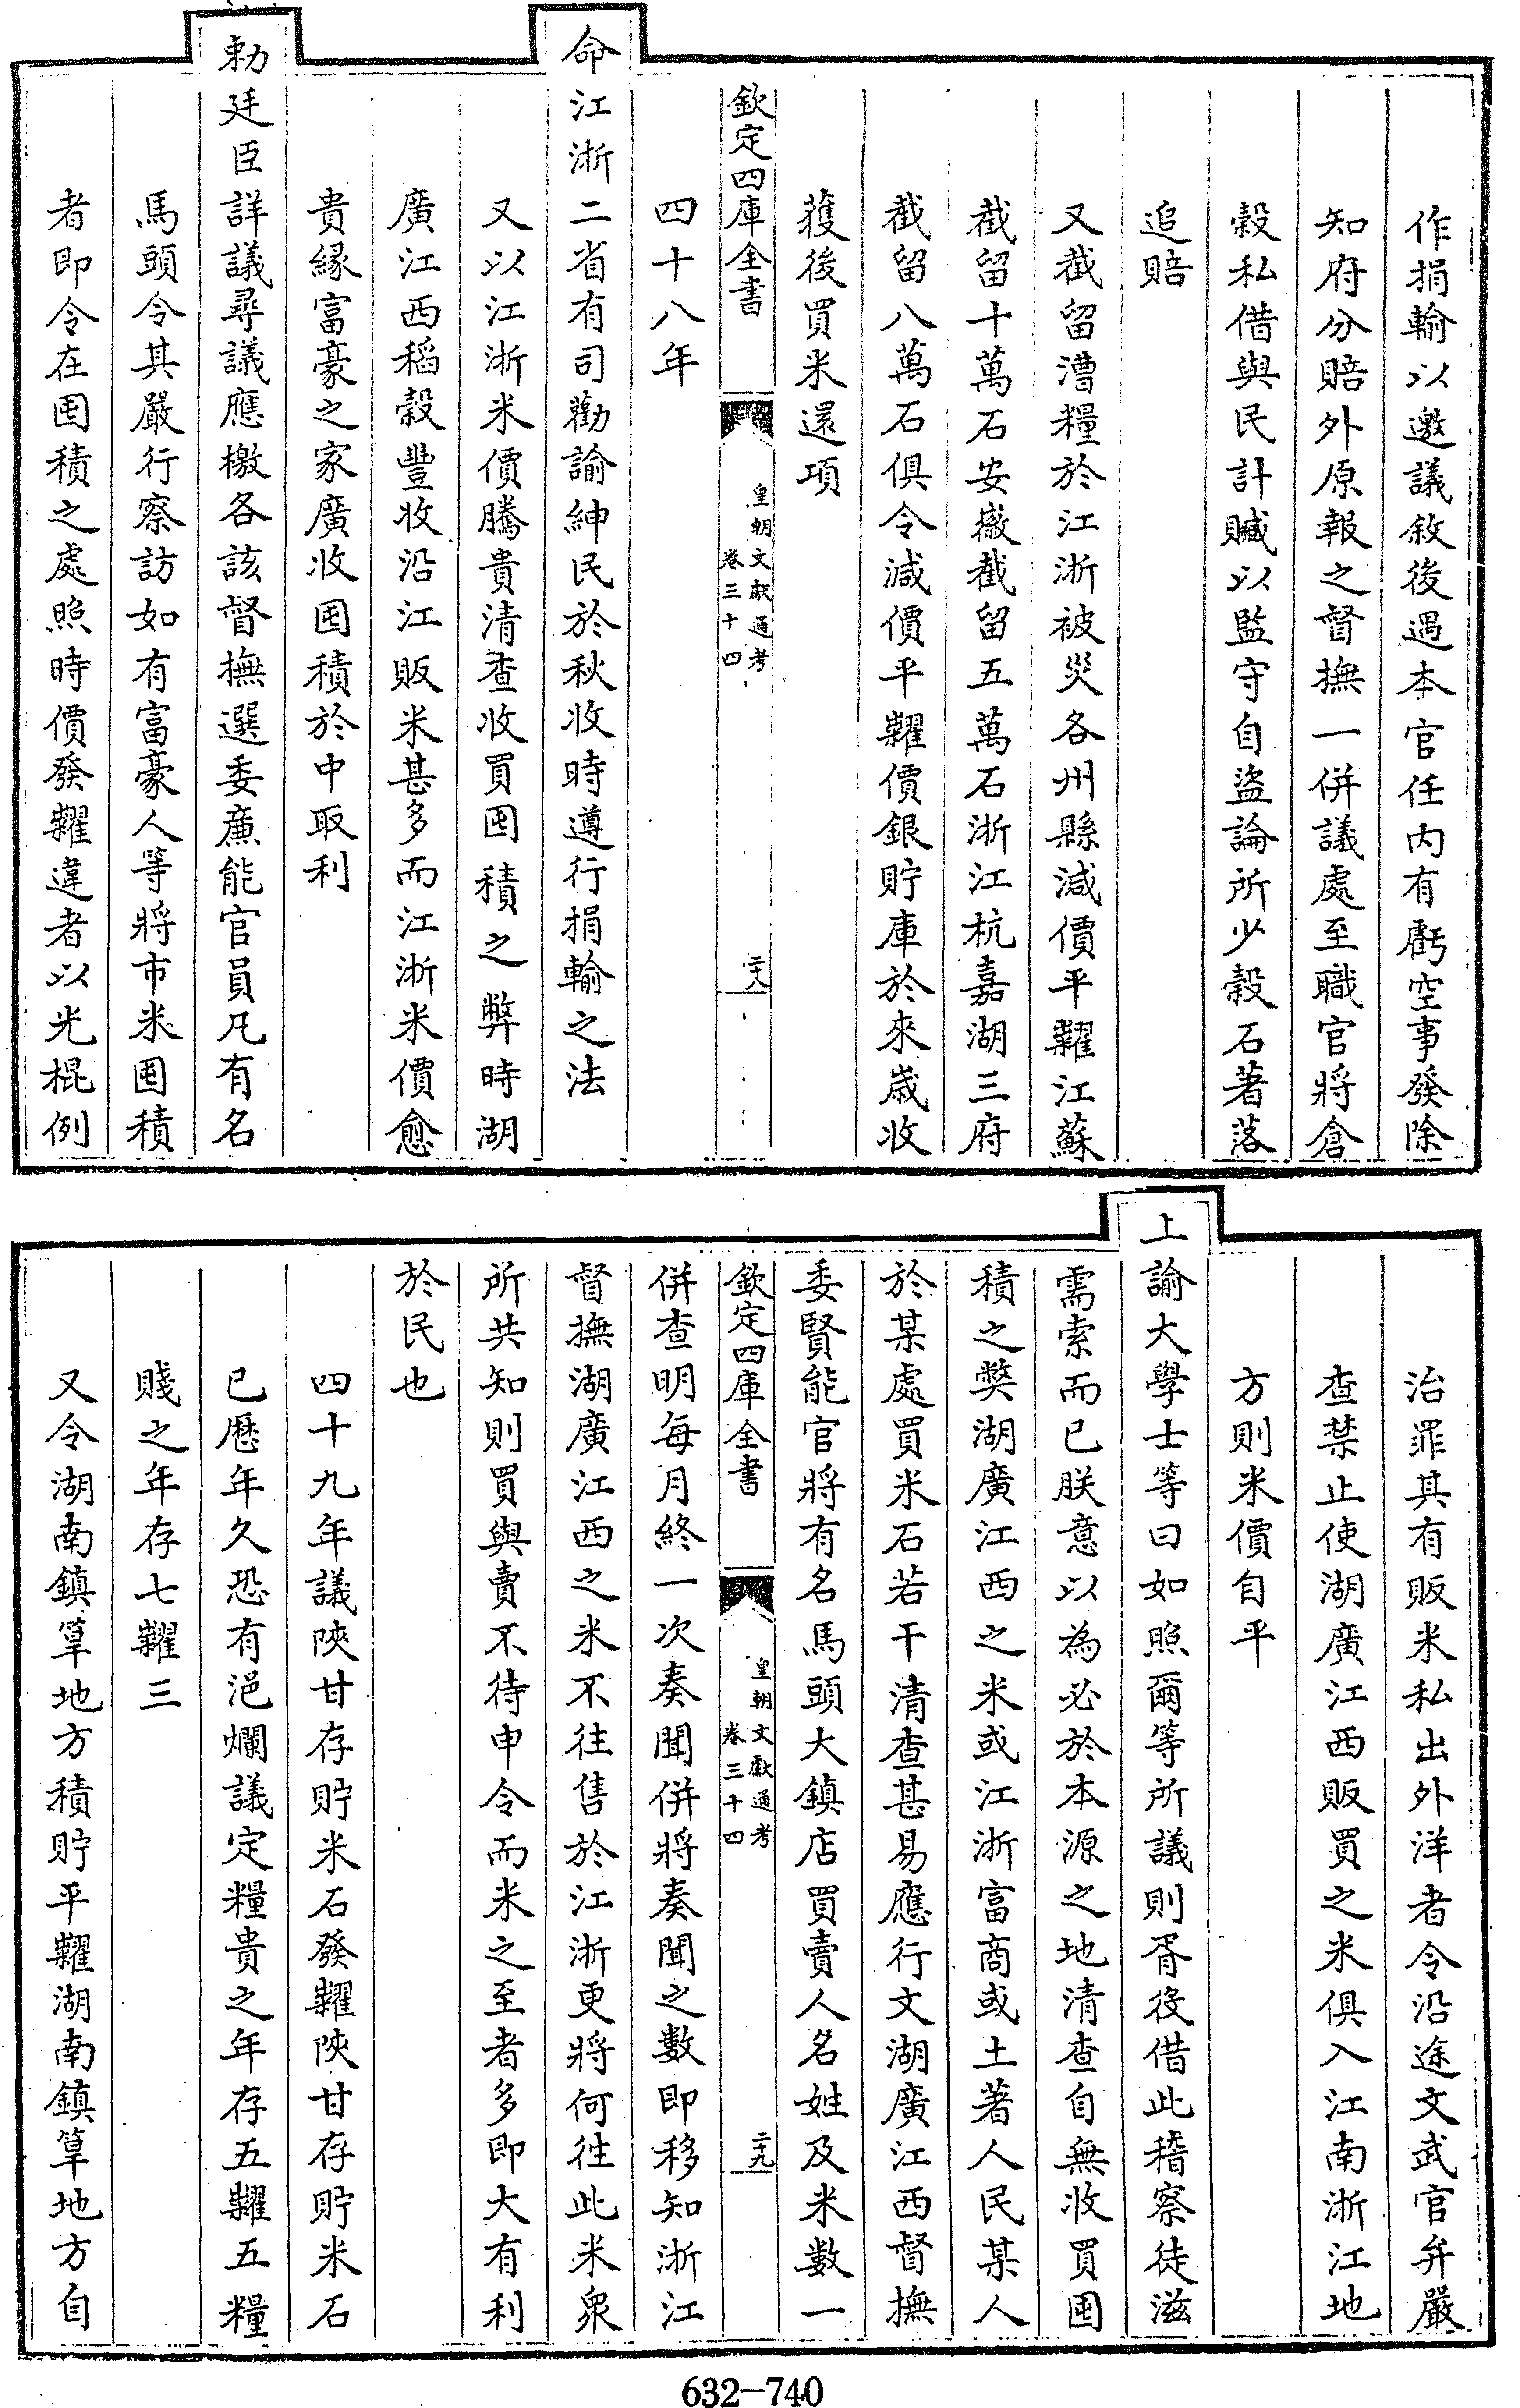 作捐輸以邀議敘後遇本官任内有虧空事發除
知府分賠外原報之督撫一併議處至職官將倉
穀私借與民計贓以監守自盜論所少穀石著落
追賠
又截留漕糧於江浙被災各州縣減價平糶江蘇
截留十萬石安徽截留五萬石浙江杭嘉湖三府
截留八萬石俱令減價平糶價銀貯庫於來歲收
穫後買米還項
欽定四庫全書
皇朝文獻通考
卷三十四
二十八
四十八年
命江浙二省有司勸諭紳民於秋收時遵行捐輸之法
又以江浙米價騰貴清查收買囤積之弊時湖
廣江西稻穀豐收沿江販米甚多而江浙米價愈
貴緣富豪之家廣收囤積於中取利
勅廷臣詳議尋議應檄各該督撫選委廉能官員凡有名
馬頭令其嚴行察訪如有富豪人等將市米囤積
者即令在囤積之處照時價發糶違者以光棍例
治罪其有販米私出外洋者令沿途文武官弁嚴
查禁止使湖廣江西販買之米俱入江南浙江地
方則米價自平
上諭大學士等曰如照爾等所議則胥役借此稽察徒滋
需索而已朕意以為必於本源之地清查自無收買囤
積之獘湖廣江西之米或江浙富商或土著人民某人
於某處買米石若干清查甚易應行文湖廣江西督撫
委賢能官將有名馬頭大鎮店買賣人名姓及米數一
欽定四庫全書
皇朝文獻通考
卷三十四
二十九
併查明每月終一次奏聞併將奏聞之數即移知浙江
督撫湖廣江西之米不往售於江浙更將何往此米衆
所共知則買與賣不待申令而米之至者多即大有利
於民也
四十九年議陝甘存貯米石發糶陝甘存貯米石
已歷年久恐有浥爛議定糧貴之年存五糶五糧
賤之年存七糶三
又令湖南鎮筸地方積貯平糶湖南鎮筸地方自
632-740